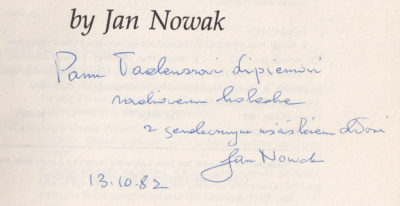 by Jan Nowak
Panu Tadeuszowi Lipieniowi
radiowemu koledze
z serdecznym uściskiem dłoni
Jan Nowak
13.10.82